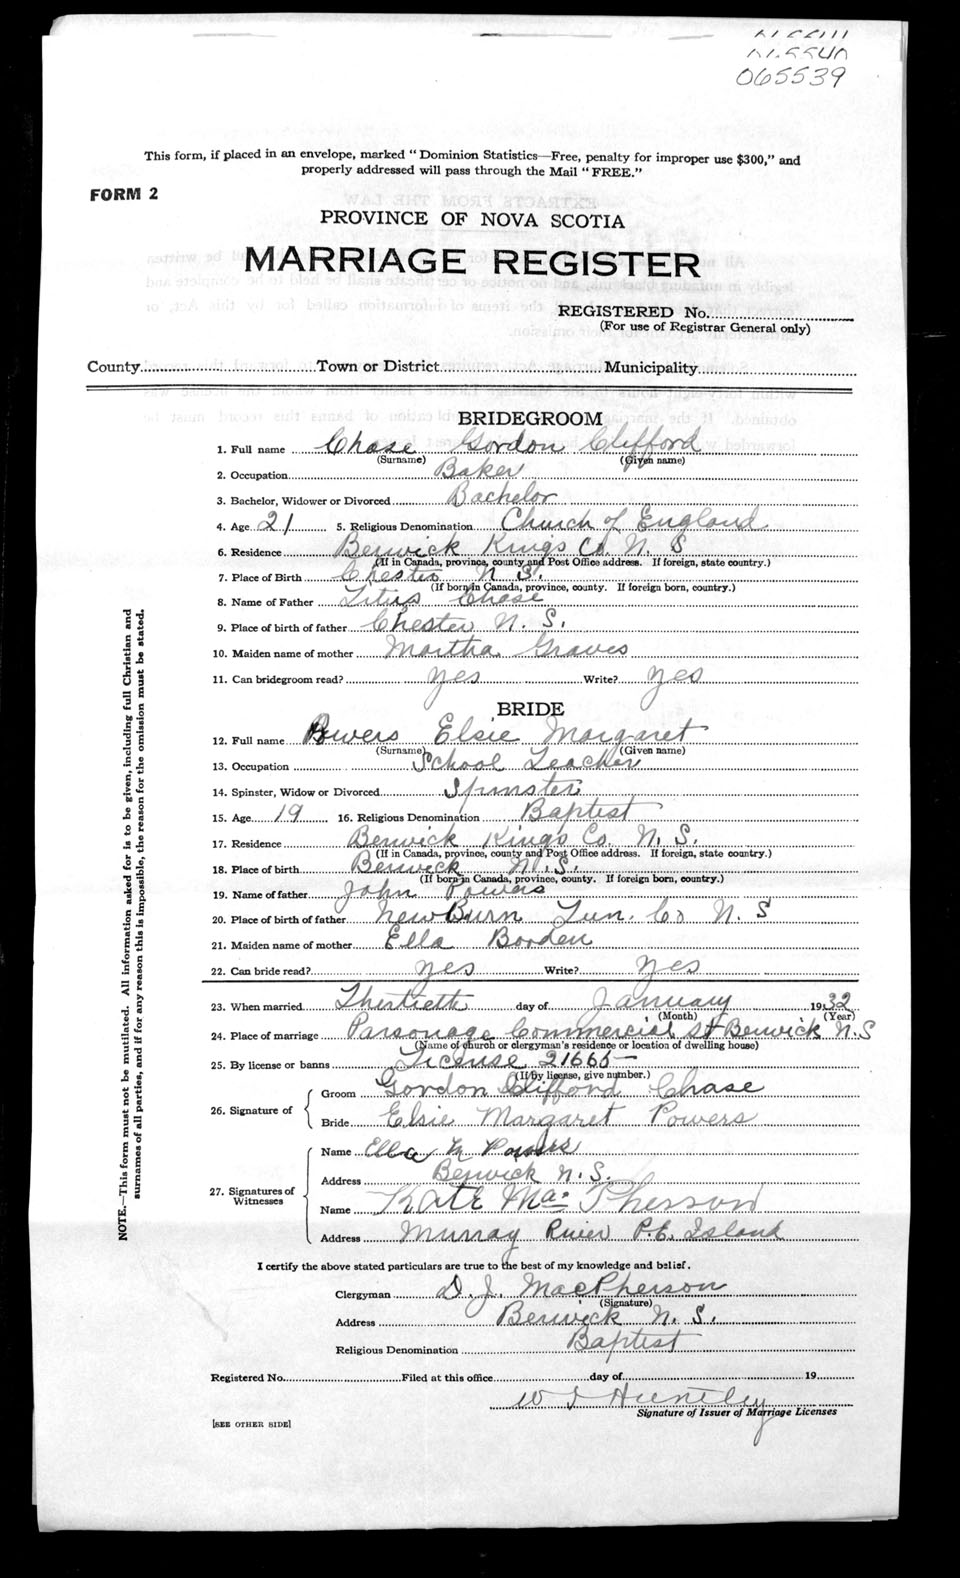 065539
This form, if placed in an envelope, marked "Dominion Statistics—Free, penalty for improper use $300," and
properly addressed will pass through the Mail "FREE."
FORM 2
PROVINCE OF NOVA SCOTIA
MARRIAGE REGISTER
REGISTERED No.
(For use of Registrar General only)
County Town or District Municipality
BRIDEGROOM
1. Full name Chase Gordon Clifford
(Surname) (Given name)
2. Occupation Baker
3. Bachelor, Widower or Divorced Bachelor
4. Age 21 5. Religious Denomination Church of England
6. Residence Berwick Kings Co. N. S
(If in Canada, province, county and Post Office address. If foreign, state country.)
7. Place of Birth Chester N S.
(If born in Canada, province, county. If foreign born, country.)
8. Name of Father Titus Chase
9. Place of birth of father Chester N. S.
10. Maiden name of mother Martha Graves
11. Can bridegroom read? yes Write? yes
BRIDE
12. Full name Powers Elsie Margaret
(Surname) (Given name)
13. Occupation School Teacher
14. Spinster, Widow or Divorced Spinster
15. Age 19 16. Religious Denomination Baptist
17. Residence Berwick King's Co. N. S.
(If in Canada, province, county and Post Office address. If foreign, state country.)
18. Place of birth Berwick N. S.
(If born in Canada, province, county. If foreign born, country.)
19. Name of father John Powers
20. Place of birth of father New Burn Lun. Co N. S
21. Maiden name of mother Ella Borden
22. Can bride read? yes Write? yes
23. When married day of January 1932
(Month) (Year)
24. Place of marriage Parsonage Commercial St Berwick N. S
(Name of church or clergyman's residence or location of dwelling house)
25. By license or banns License 21665—
(If by license, give number.)
26. Signature of
Groom Gordon Clifford Chase
Bride Elsie Margaret Powers
27. Signatures of Witnesses
Name Ella M Powers
Address Berwick N. S.
Name Kate MacPherson
Address Murray River P.E. Island
I certify the above stated particulars are true to the best of my knowledge and belief.
Clergyman D. J. MacPherson
(Signature)
Address Berwick N. S.
Religious Denomination Baptist
Registered No. Filed at this office day of 19
Huntley
Signature of Issuer of Marriage Licenses
[SEE OTHER SIDE]
NOTE.—This form must not be mutilated. All information asked for is to be given, including full Christian and
surnames of all parties, and if for any reason this is impossible, the reason for the omission must be stated.